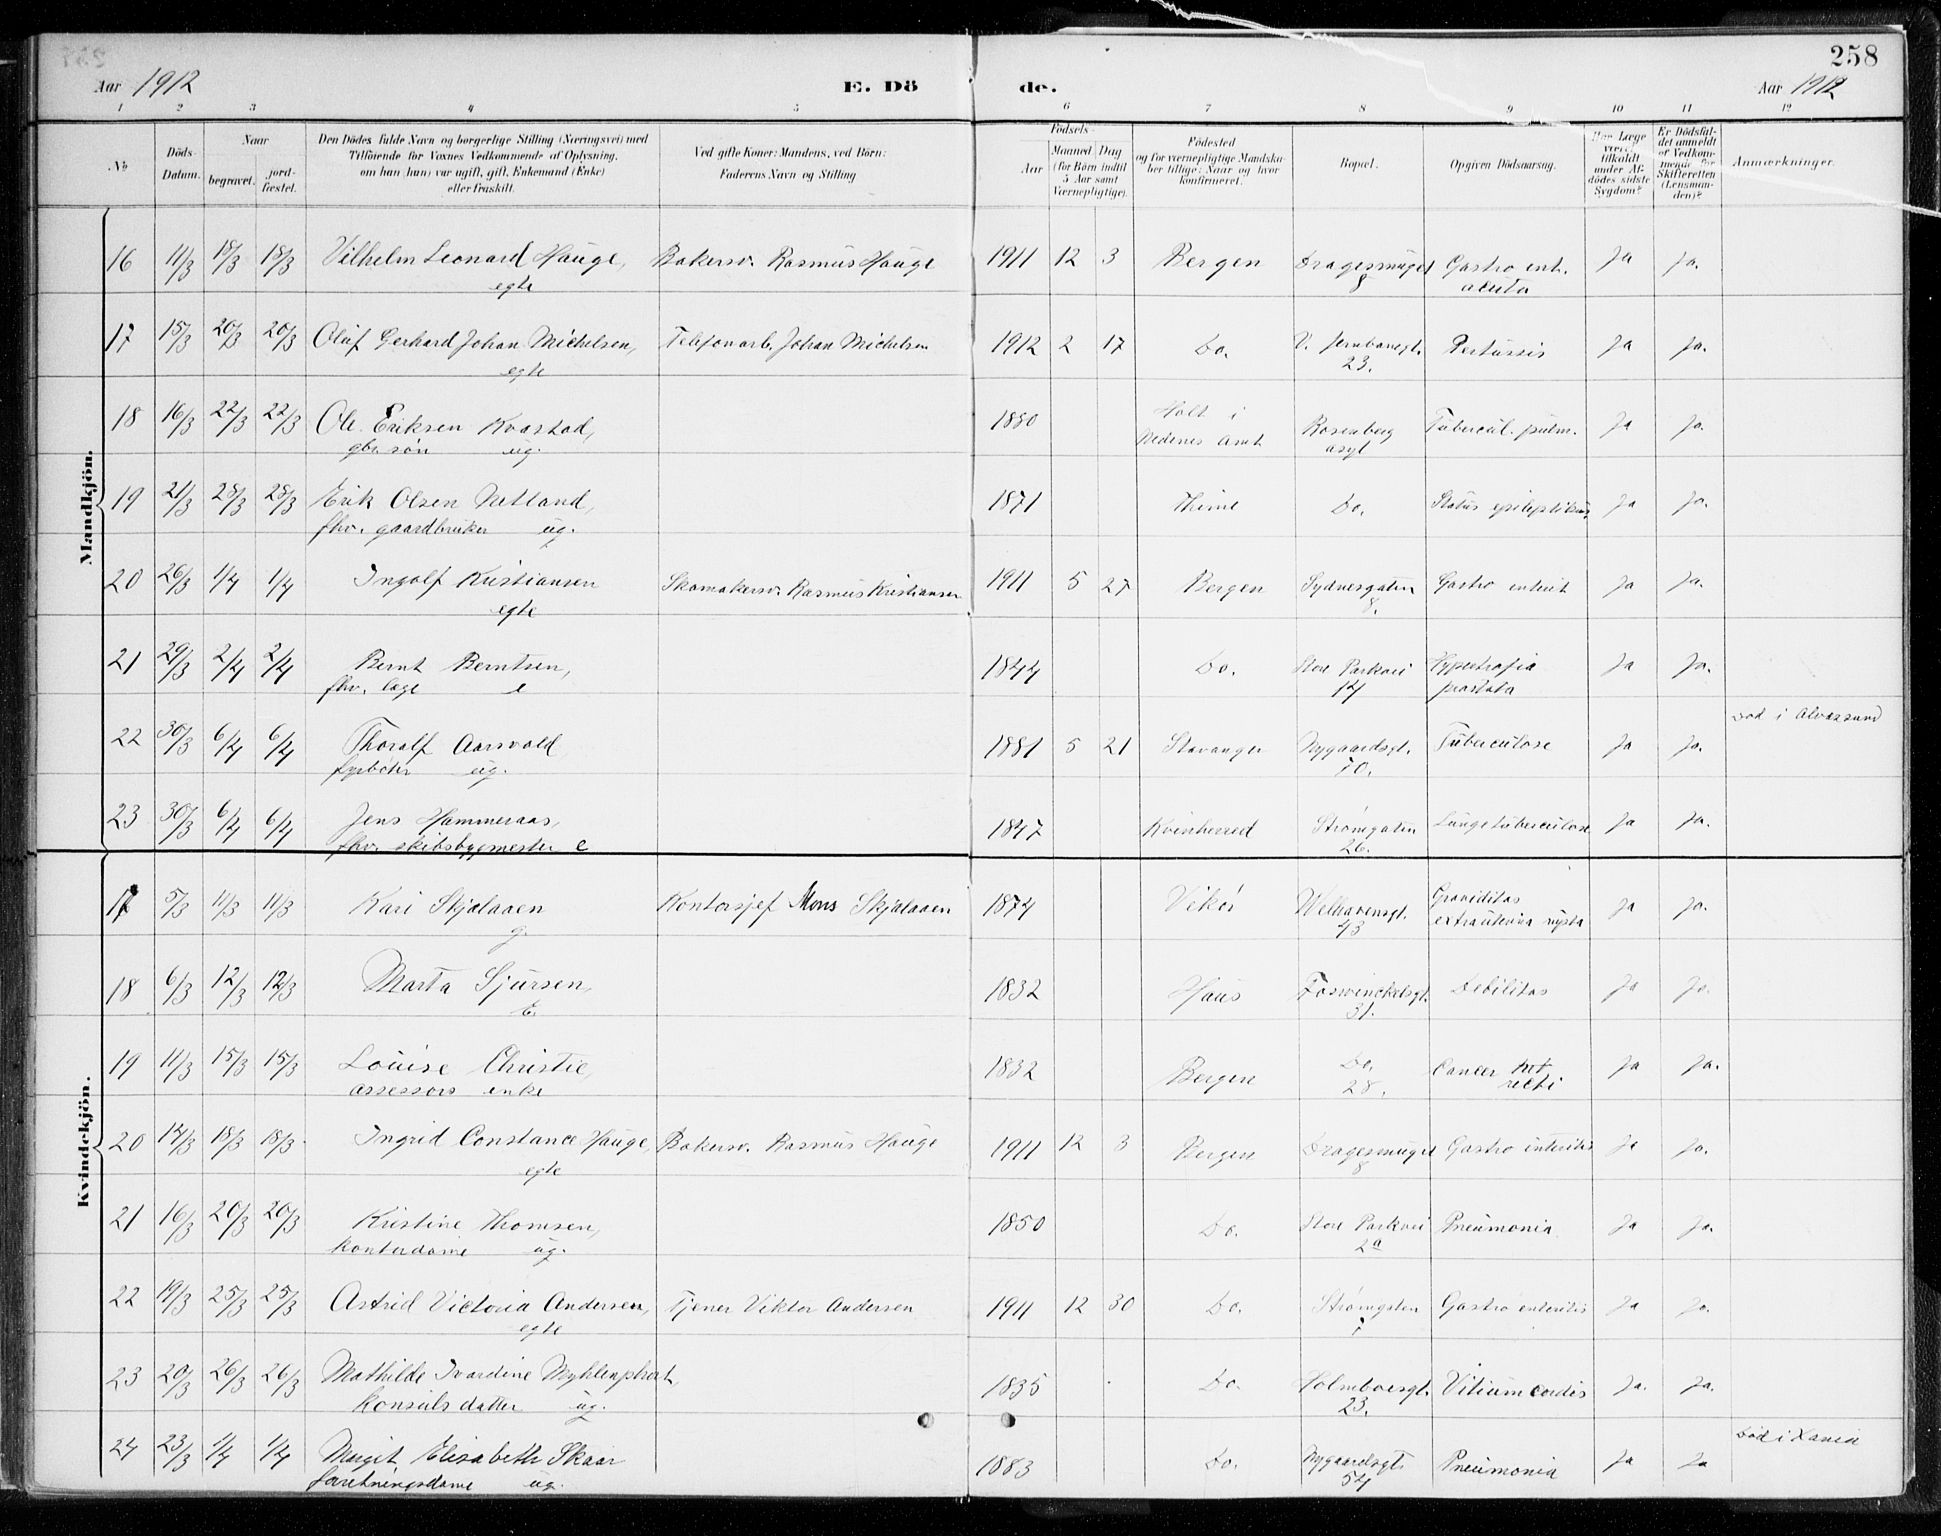 258
Aar 1912
E. Döde.
Aar 1912
1 2 3 4 5 6 7 8 9 10 11 12
No
Döds-Datum.
Naar
begravet.
jordfæstet.
Den Dödes fulde Navn og borgerlige Stilling (Næringsvei) med
Tilföiende for Voxnes Vedkommende af Oplysning,
om han (hun) var ugift, gift, Enkemand (Enke)
eller fraskilt.
Ved gifte Koner: Mandens, ved Börn:
Faderens Navn og Stilling
Födsels-
Aar
Maaned Dag
(for Börn indtil
5 Aar samt
Værnepligtige).
Födested
og for værnepligtige Mandska-
ber tillige: Naar og hvor
konfirmeret.
Bopæl.
Opgiven Dödsaarsag.
Har Læge
været
tilkaldt
under Af-
dödes sidste
Sygdom?
Er Dödsfal-
det anmeldt
for Vedkom-
mende
Skifteretten
(Lensman-
den)?
Anmærkninger.
Mandkjön.
16 11/3 18/3 18/3 Vilhelm Leonard Hauge, Bakersv. Rasmus Hauge 1911 12 3 Bergen Dragesmuget Gastro ent. Ja Ja.
egte 8 acuta
17 15/3 20/3 20/3 Oluf Gerhard Johan Michelsen, Telefonarb. Johan Michelsen 1912 2 17 Do. V. Jernbanegt. Pertussis Ja Ja.
egte 23.
18 16/3 22/3 22/3 Ole Eriksen Kvastad, 1880 Holt i Nedenes Amt Rosenberg Tubercul. pulm. Ja Ja.
gbr. søn ug. asyl
19 21/3 28/3 28/3 Erik Olsen Netland, 1871 Thime Do. Status epileptikus Ja Ja.
fhv. gaardbruker ug.
20 26/3 1/4 1/4 Ingolf Kristiansen Skomakersv. Rasmus Kristiansen 1911 5 27 Bergen Sydnesgaten Gastro enterit Ja Ja.
egte 8.
21 29/3 2/4 2/4 Bernt Berntsen, 1844 Do. Store Parkvei Hypertrofia Ja Ja.
fhv. læge e 14 prostata
Død i Alvøsund
22 30/3 6/4 6/4 Thoralf Aarsvold 1881 5 21 Stavanger Nygaardsgt. Tuberculose Ja Ja.
fyrbøter ug. 70.
23 30/3 6/4 6/4 Jens Hammeraas, 1847 Kvinherred Strømgaten Lungetuberculose Ja Ja.
fhv. skibsbygmester e 26.
Kvindekjön.
17 5/3 11/3 11/3 Kari Skjalaaen Kontorsjef Mons Skjalaaen 1874 Vikør Welhavensgt. Graviditas Ja Ja.
g. 43 extrauterina
18 6/3 12/3 12/3 Marta Sjursen, 1832 Haus Fosswinckelsgt. Debilitas Ja Ja.
E. 31.
19 11/3 15/3 15/3 Louise Christie, 1832 Bergen Do. Cancer Ja Ja.
assessors enke 28. recti
20 14/3 18/3 18/3 Ingrid Constance Hauge, Bakersv. Rasmus Hauge 1911 12 3 Bergen Dragesmuget Gastro enteritis Ja Ja.
egte 8
21 16/3 20/3 20/3 Kristine Thomsen, 1850 Do. Store Parkvei Pneumonia Ja Ja.
kontordame ug. 2a
22 19/3 25/3 25/3 Astrid Victoria Andersen, Tjener Viktor Andersen 1911 12 30 Do. Strømgaten Gastro enteritis Ja Ja.
egte
23 20/3 26/3 26/3 Mathilde Ivardine Myhlenphort, 1835 Do. Holmboesgt. Vitium cordis Ja. Ja.
konsuls datter ug. 23.
24 23/3 1/4 1/4 Margit Elisabeth Skaar 1883 Do. Nygaardsgt. Pneumonia Ja Ja
forretningsdame ug. 54
Død i Xania